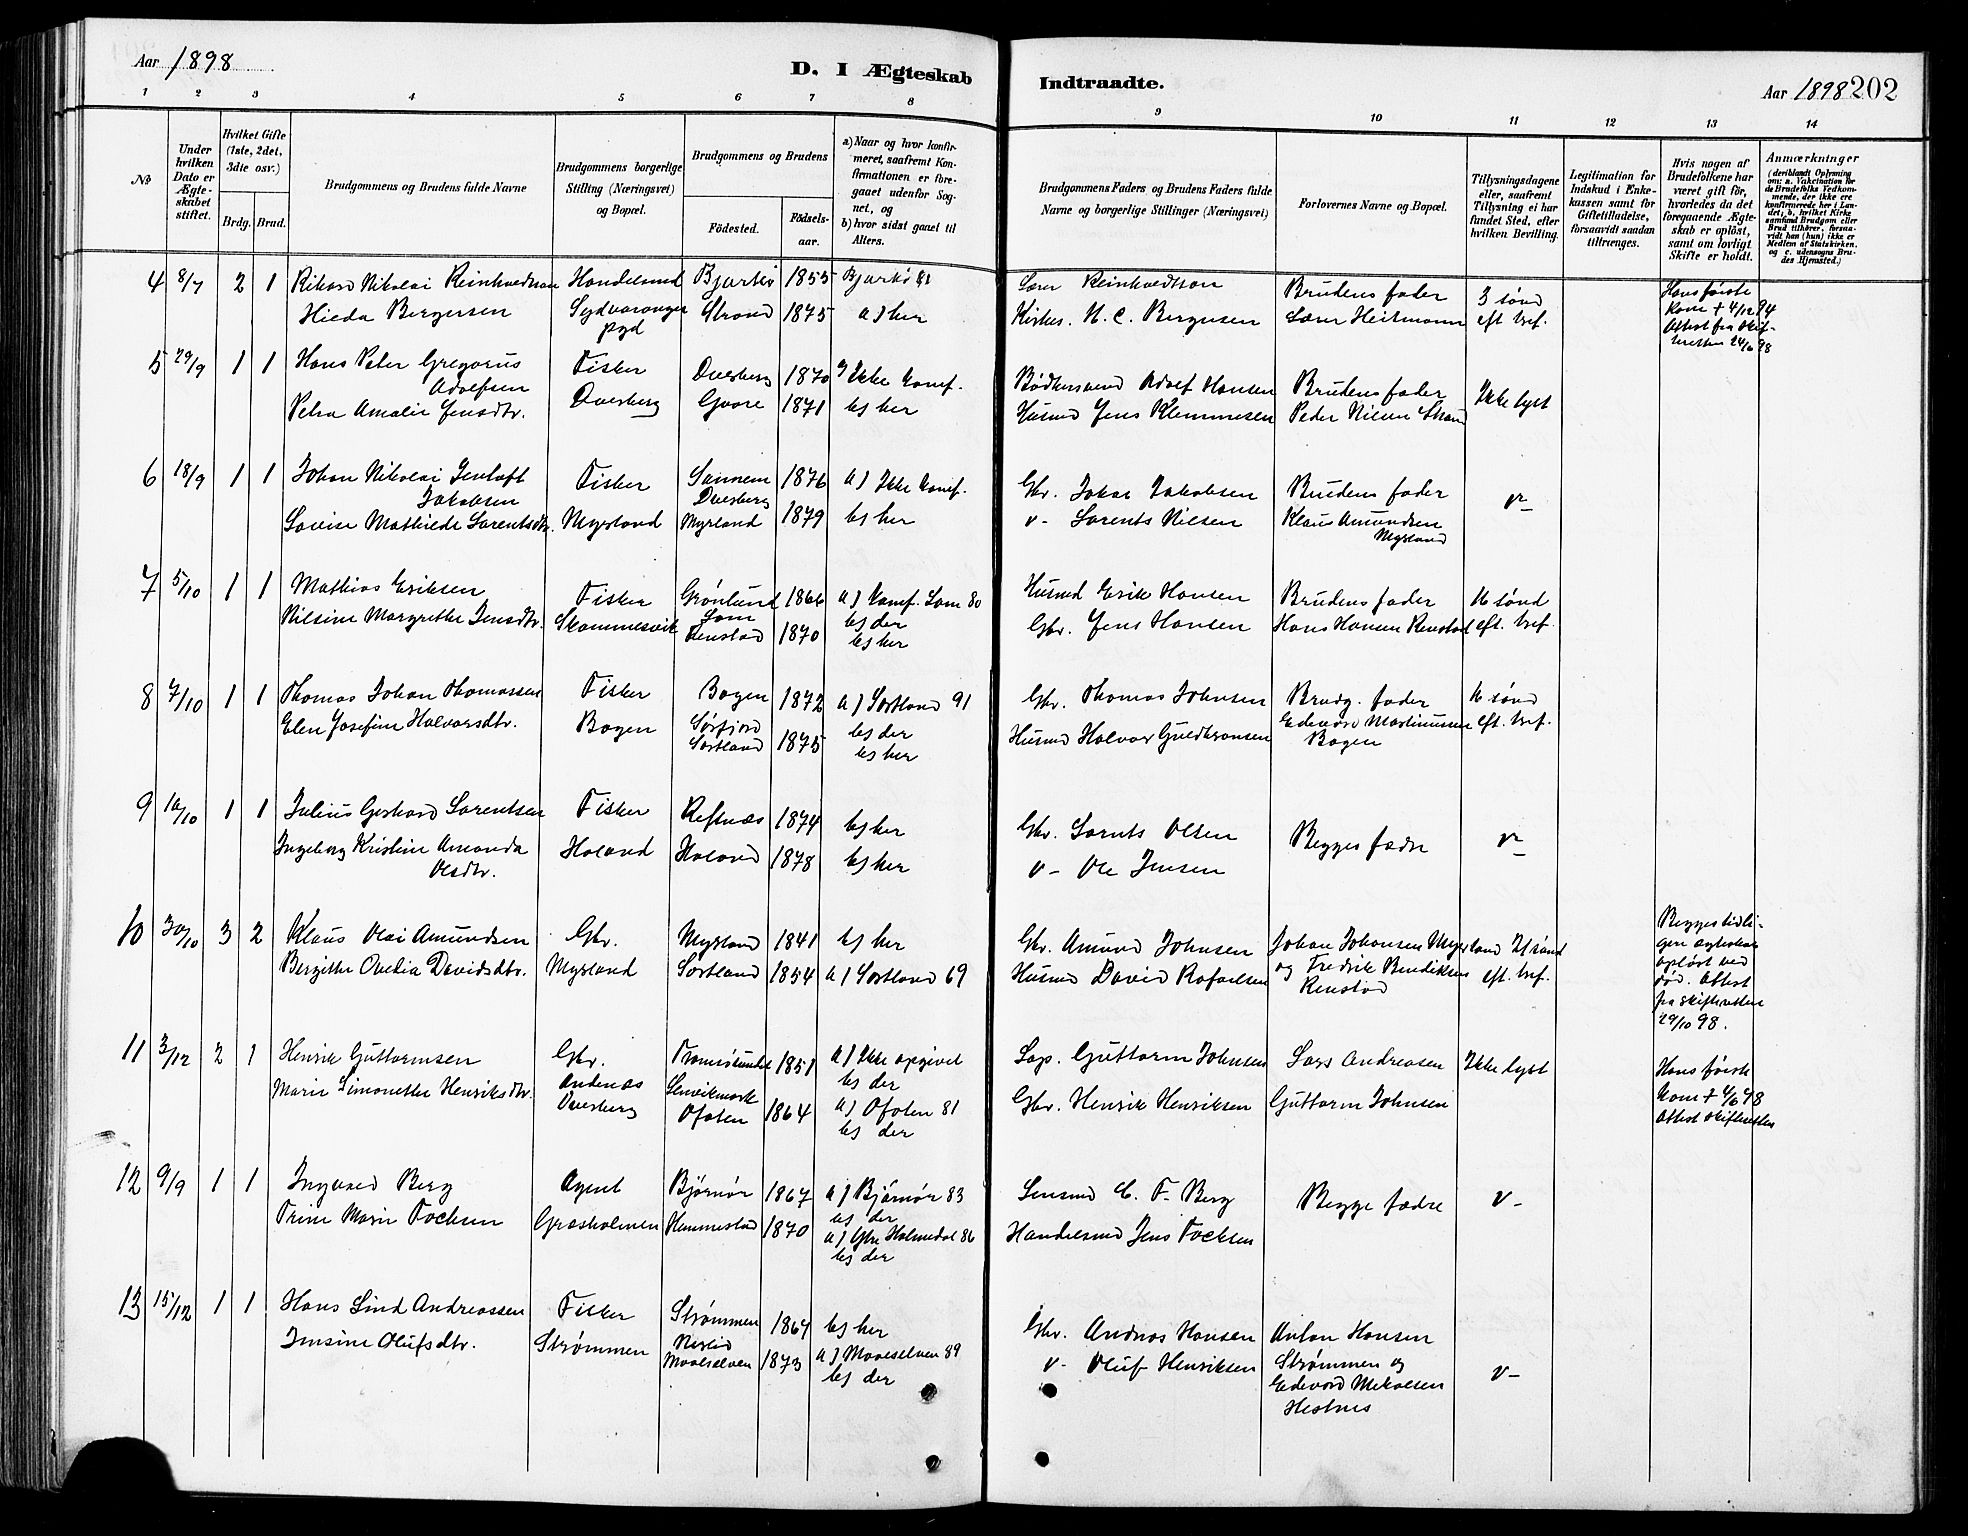 Aar 1898
D. I Ægteskab
Indtraadte.
Aar 1898 202
1 2 3 4 5 6 7 8 9 10 11 12 13 14
No
Under hvilken Dato er Ægteskabet stiftet.
Hvilket Gifte (1ste, 2det, 3dte osv.)
Brdg. Brud.
Brudgommens og Brudens fulde Navne
Brudgommens borgerlige Stilling (Næringsvei) og Bopæl.
Brudgommens og Brudens
Födested. Födsels-aar.
a) Naar og hvor konfirmeret, saafremt Konfirmationen er foregaaet udenfor Sognet, og
b) hvor sidst gaaet til Alters.
Brudgommens Faders og Brudens Faders fulde Navne og borgerlige Stillinger (Næringsvei)
Forlovernes Navne og Bopæl.
Tillysningsdagene eller, saafremt Tillysning ei har fundet Sted, efter hvilken Bevilling.
Legitimation for Indskud i Enkekassen samt for Giftetilladelse, forsaavidt saadan tiltrænges.
Hvis nogen af Brudefolkene har været gift för, hvorledes da det foregaaende Ægteskab er oplöst, samt om lovligt Skifte er holdt.
Anmærkninger (deriblandt Oplysning om: a. Vakcination for de Brudefolks Vedkommende, der ikke ere konfirmerede her i Landet; b. hvilket Kirkesamfund Brudgom eller Brud tilhörer, forsaavidt han (hun) ikke er Medlem af Statskirken. og c. udensogns Brudes Hjemsted.)
4 8/7 2 1 Rikard Nikolai Reinhardtsen Handelsmd Bjarkö 1855 Bjarkö
Lærer Reinhardtsen Brudens fader 3 sönd Hans förste
Hilda Bergersen Sydvaranger Strand 1875 a) her
Kirkes. N. C. Bergersen Lærer Heitmann eft tref. Kone + 4/12 94
pgd
Attest fra Skif-
teretten 24/6 98
5 29/9 1 1 Hans Peter Gregorius Fisker Dverberg 1870 a) Ikke komf.
Adolfsen
Bødkersvend Adolf Hansen Brudens fader Ikke lyst
Petra Amalie Jensdtr. Dverberg Gvare 1871 b) her
Husmd Jens Klemmesen Peder Nilsen Strand
6 18/9 1 1 Johan Nikolai Jentoft Fisker Sannem 1876 a) Ikke komf.
Jakobsen Dverberg
Gbr. Johan Jakobsen Brudens fader v-
Lovise Mathilde Lorentsdtr. Myrland Myrland 1879 b) her
v- Lorents Nilsen Klaus Amundsen
Myrland
7 5/10 1 1 Mathias Eriksen Fisker Grønlund 1866 a) Komf. Lom 80
Lom b) der
Husmd Erik Hansen Brudens fader 16 sönd
Nilsine Margrethe Jensdtr. Skommesvik Renstad 1870 b) her
Gbr. Jens Hansen Hans Hansen Renstad eft. tref.
8 7/10 1 1 Thomas Johan Thomassen Fisker Bogen 1872 a) Sortland 91
b) der
Gbr. Thomas Johnsen Brudg. fader 16 sönd
Elen Josefine Halvorsdtr. Bogen Sørfjord Sortland 1875 b) her
Husmd Halvor Guldbransen Edevard Martinussen eft. tref.
Bogen
9 10/10 1 1 Julius Gerhard Lorentsen Fisker Reftnæs 1874 b) her
Gbr. Lornts Olsen Begges fædre v-
Ingeborg Kristine Amanda Haland Haland 1878 b) her
Olsdtr.
v- Ole Jensen
10 30/10 3 2 Klaus Olai Amundsen Gbr. Myrland 1841 b) her
Gbr. Amund Johnsen Johan Johansen Myrland 21 sönd
Bergitte Ovelia Davidsdtr. Myrland Sortland 1854 a) Sortland 69
Husmd David Rafaelsen og Fredrik Bendiksen eft. tref.
Renstad
Begges tidli-
gere ægteskab
opløst ved
död. Attest
fra skifteretten
29/10 98.
11 3/12 2 1 Henrik Guttormsen Gbr. Tromsøsundet 1851 a) Ikke opgivet
b) der
Lap. Guttorm Johnsen Lars Andreasen Ikke lyst Hans förste
Marie Simonette Henriksdtr. Andenæs Lenvikmark
Dverberg Ofoten 1864 a) Ofoten 81
b) der
Gbr. Henrik Henriksen Guttorm Johnsen
Kone + 4/6 98
Attest Skifteretten
12 9/9 1 1 Ingvard Berg Agent Björnör 1867 a) Björnör 83
b) der
C. F. Berg Begge fædre v-
Trine Marie Focksen Græsholmen Hemmestad 1870 a) Holmedal 86
b) der
Handelsmd Jens Focksen
13 15/12 1 1 Hans Lind Andreassen Fisker Strømmen 1867 b) her
Gbr. Andreas Hansen Anton Hansen
Jensine Olufsdtr. Strømmen Maalselven 1873 a) Maalselven 89
b) der
v- Oluf Henriksen Strømmen og v-
Edevard Mikalsen
Hestnes